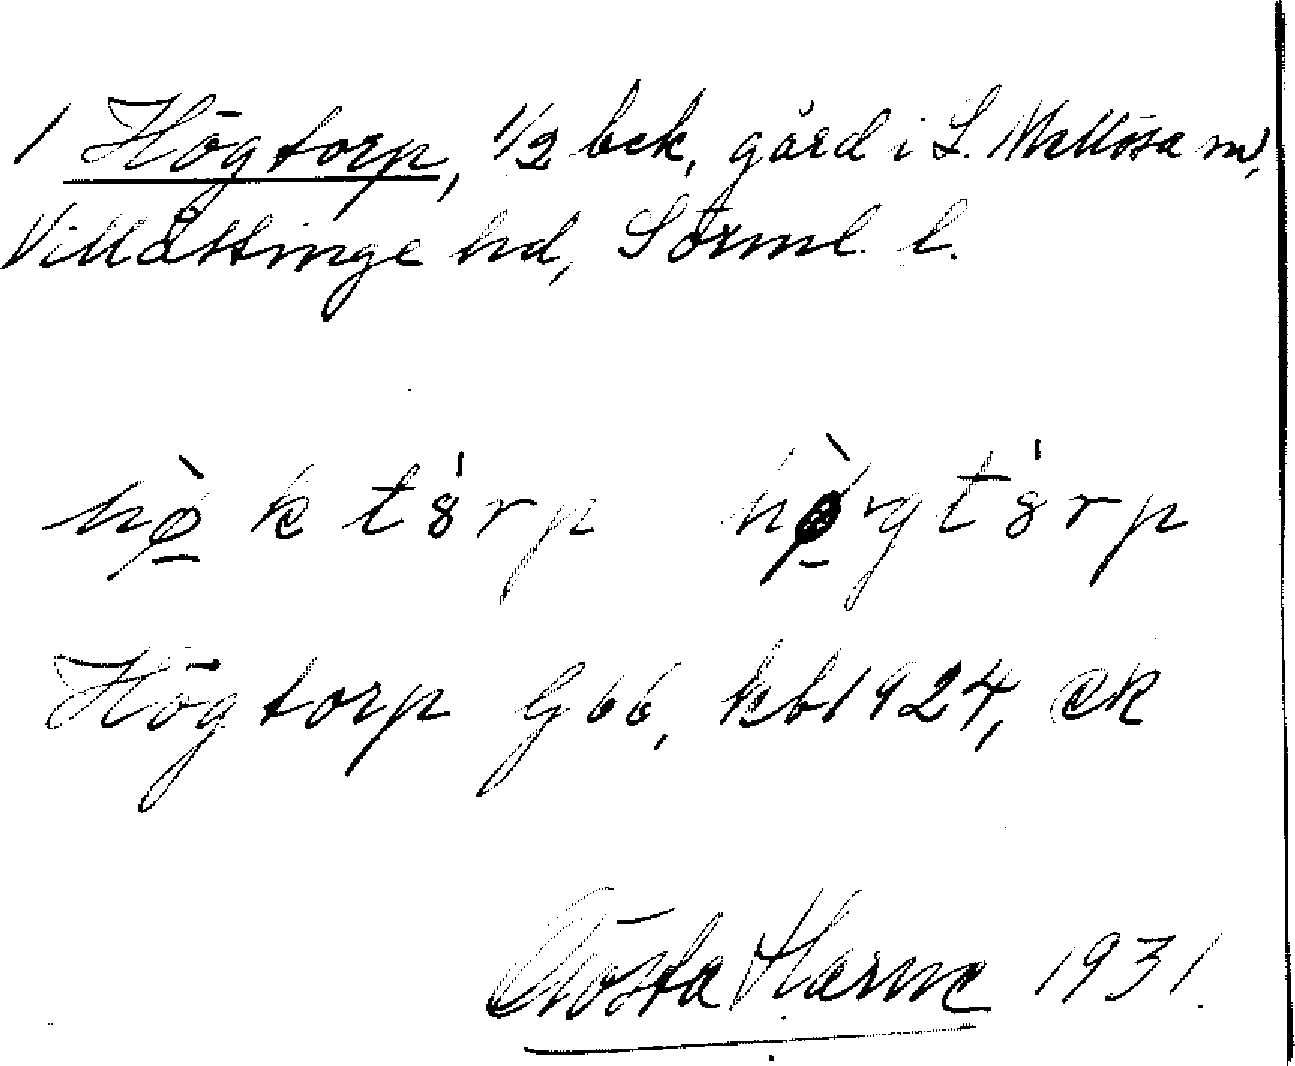 1 Högtorp, 1/2 bck, gård i L. Mellösa sn,
Villåttinge hd, Sörml. l.
hø̀ktȯ́rp hø̀gtȯ́rp
Högtorp G66, kb1924, ek
Gösta Harne 1931.